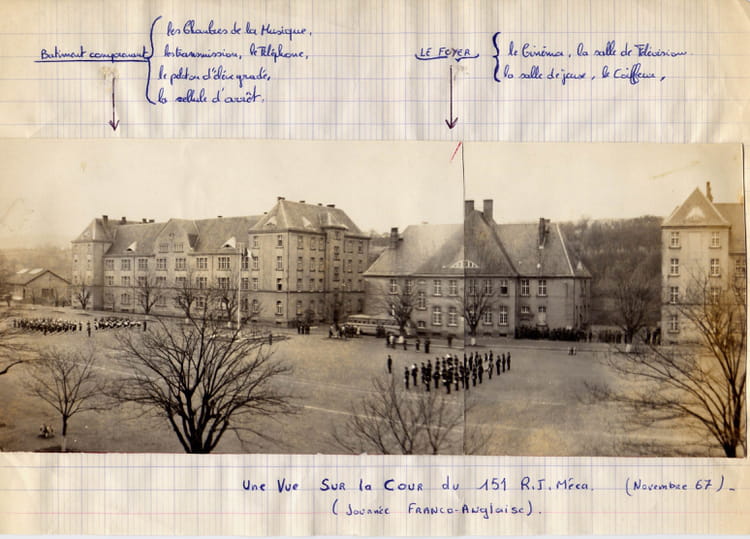 Batiment comprenant
les Chambres de la Musique,
les transmission, le Téléphone,
le peloton d'élève gradé,
la cellule d'arrêt.
LE FOYER
le Cinéma, la salle de Télévision
la salle de jeux, le Coiffeur,
Une Vue Sur la Cour du 151 R.I. Méca. (Novembre 67)_
(Journée FRANCO-ANGlaise).